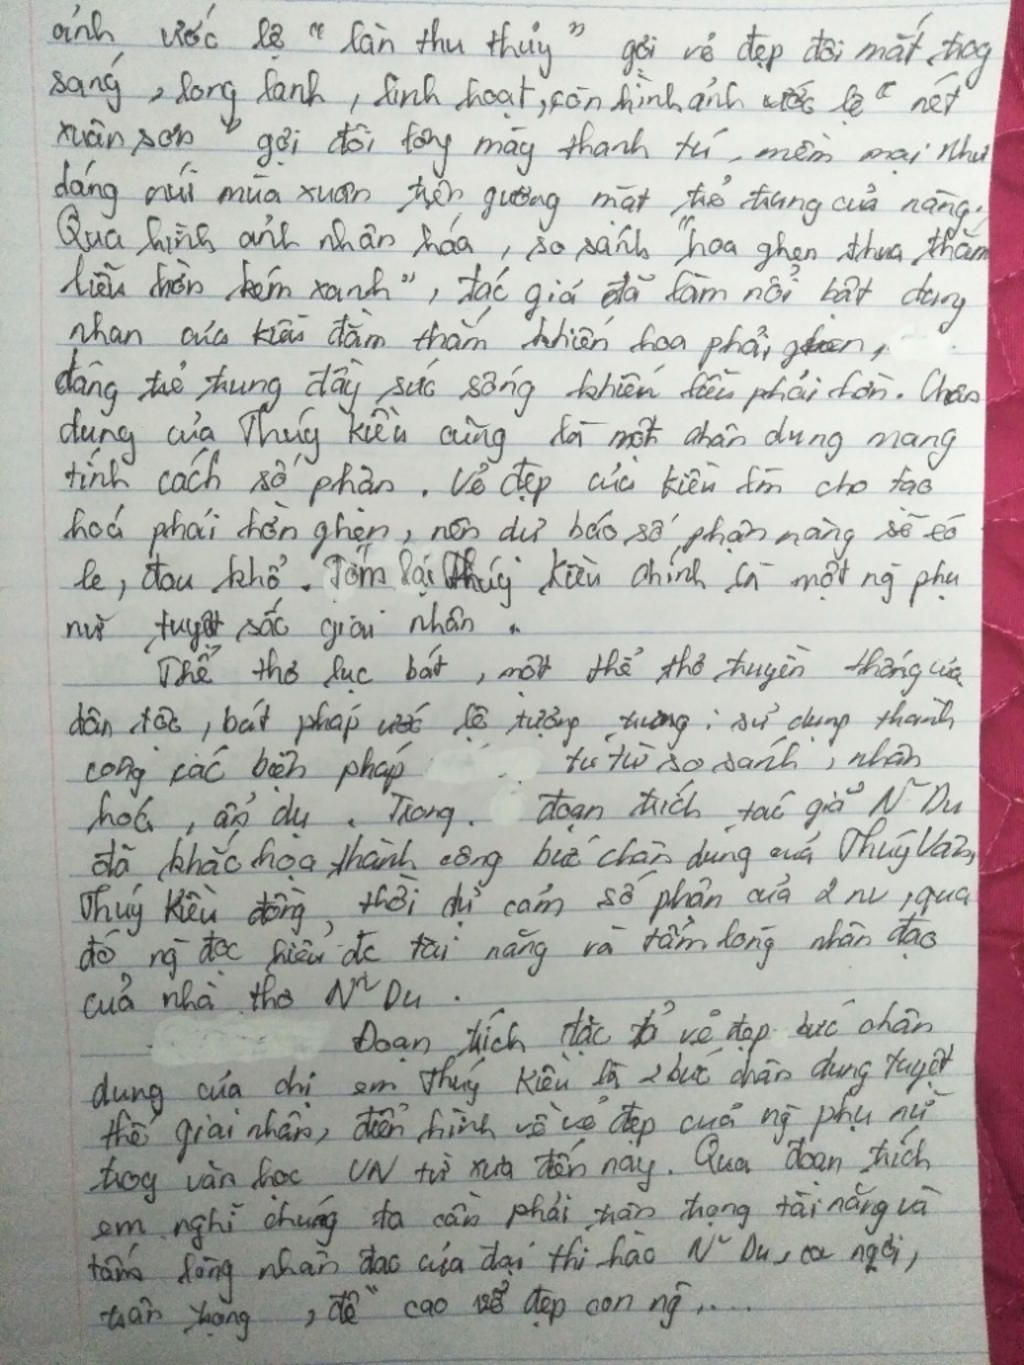 ảnh ước lệ "làn thu thủy" gợi vẻ đẹp đôi mắt trog
sáng, long lanh, linh hoạt, còn hình ảnh ước lệ "nét
xuân sơn" gợi đôi lông mày thanh tú, mềm mại như
dáng núi mùa xuân trên gương mặt trẻ trung của nàng.
Qua hình ảnh nhân hóa, so sánh "hoa ghen thua thắm
liễu hờn kém xanh", tác giả đã làm nổi bật dung
nhan của kiều đằm thắm khiến hoa phải ghen,
dáng trẻ trung đầy sức sống khiến liễu phải hờn. Chân
dung của Thúy Kiều cũng là một chân dung mang
tính cách số phận. Vẻ đẹp của kiều làm cho tạo
hoá phải hờn ghen, nên dự báo số phận nàng sẽ éo
le, đau khổ. Tóm lại Thúy Kiều chính là một ng phụ
nữ tuyệt sắc giai nhân.
Thể thơ lục bát, một thể thơ truyền thống của
dân tộc, bút pháp ước lệ tượng trưng; sử dụng thành
công các biện pháp tu từ so sánh, nhân
hoá, ẩn dụ. Trong. đoạn trích tác giả N~ Du
đã khắc họa thành công bức chân dung của Thúy Vân,
Thúy Kiều đồng thời dự cảm số phận của 2 nv, qua
đó ng đọc hiểu đc tài năng và tấm lòng nhân đạo
của nhà thơ N~ Du.
Đoạn trích đặc tả vẻ đẹp bức chân
dung của chị em Thúy Kiều là 2 bức chân dung tuyệt
thế giai nhân, điển hình về vẻ đẹp của ng phụ nữ
trog văn học VN từ xưa đến nay. Qua đoạn trích
em nghĩ chúng ta cần phải trân trọng tài năng và
tấm lòng nhân đạo của đại thi hào N~ Du, ca ngợi,
trân trọng, đề cao vẻ đẹp con ng,....